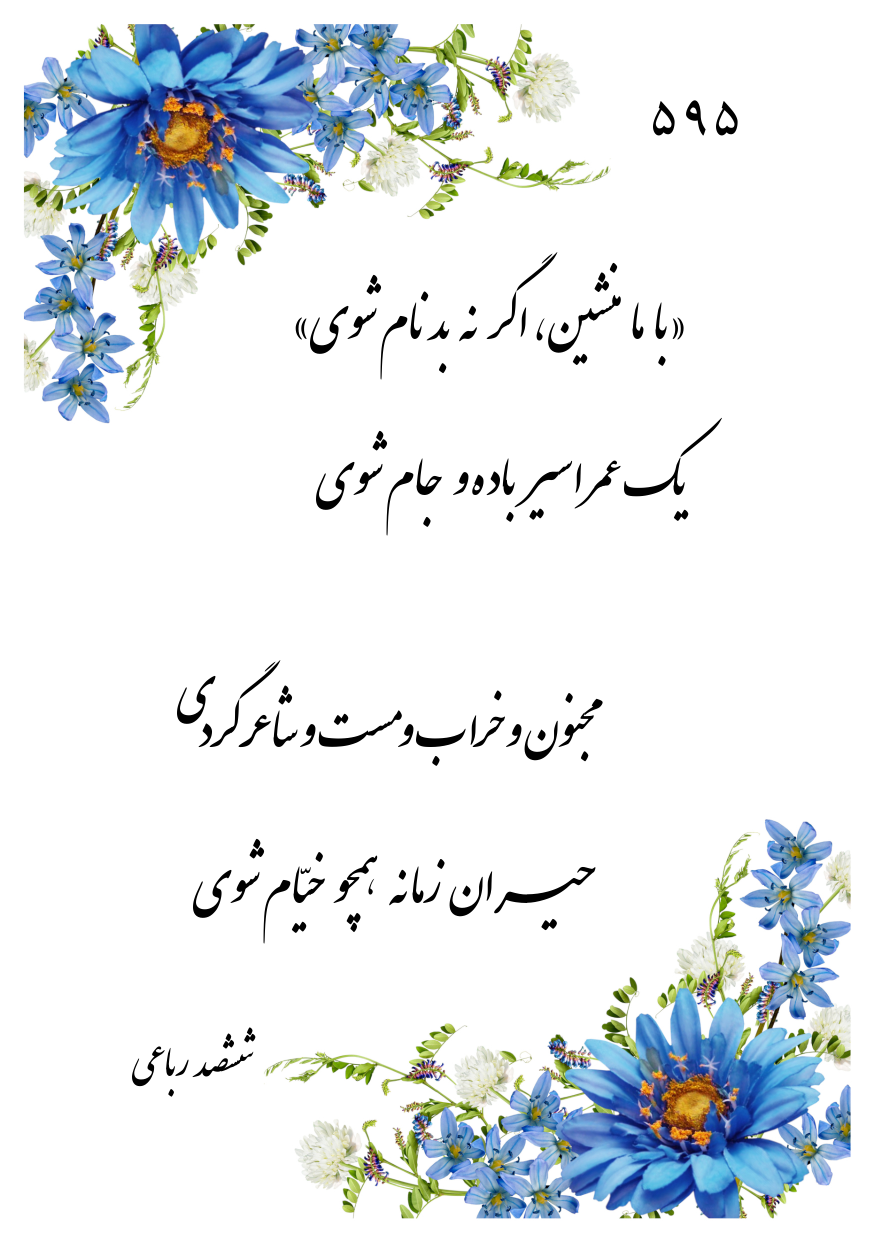 ۵۹۵
«با ما منشین، اگر نه بدنام شوی»
یک عمر اسیر باده و جام شوی
مجنون و خراب و مست و شاعر گردی
حیـــران زمانه همچو خیّام شوی
ششصد رباعی